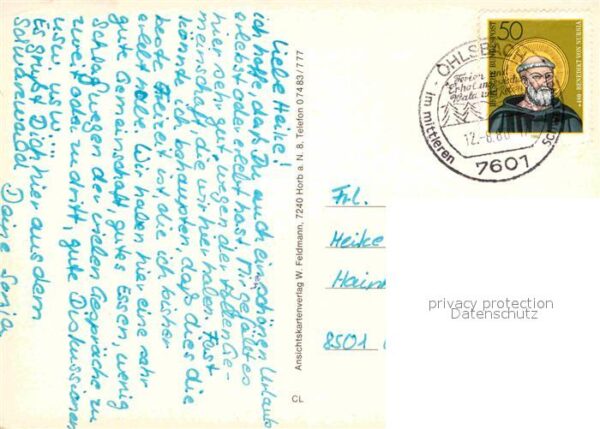 Liebe Heike!
ich hoffe, daß Du auch einen schönen Urlaub
erlebst oder erlebt hast. Mir gefällt es
hier sehr gut wegen der tollen Ge-
meinschaft, die wir hier haben. Fast
könnte ich behaupten, daß dies die
beste Freizeit ist, die ich bisher
erlebt habe. Wir haben hier eine sehr
gute Gemeinschaft, gutes Essen, wenig
Schlaf wegen der vielen Gespräche zu
zweit oder zu dritt, gute Diskussionen
usw. usw.
Es grüßt Dich hier aus dem
Schwarzwald
Deine Sonja
Ansichtskartenverlag W. Feldmann, 7240 Horb a. N. 8, Telefon 07483/777
CL
50
DEUTSCHE BUNDESPOST
BENEDIKT VON NURSIA
OHLSBACH
Ferien und
Erholung
im mittleren
12.-8.80
7601
Frl.
Heike
Hain
8501
privacy protection
Datenschutz